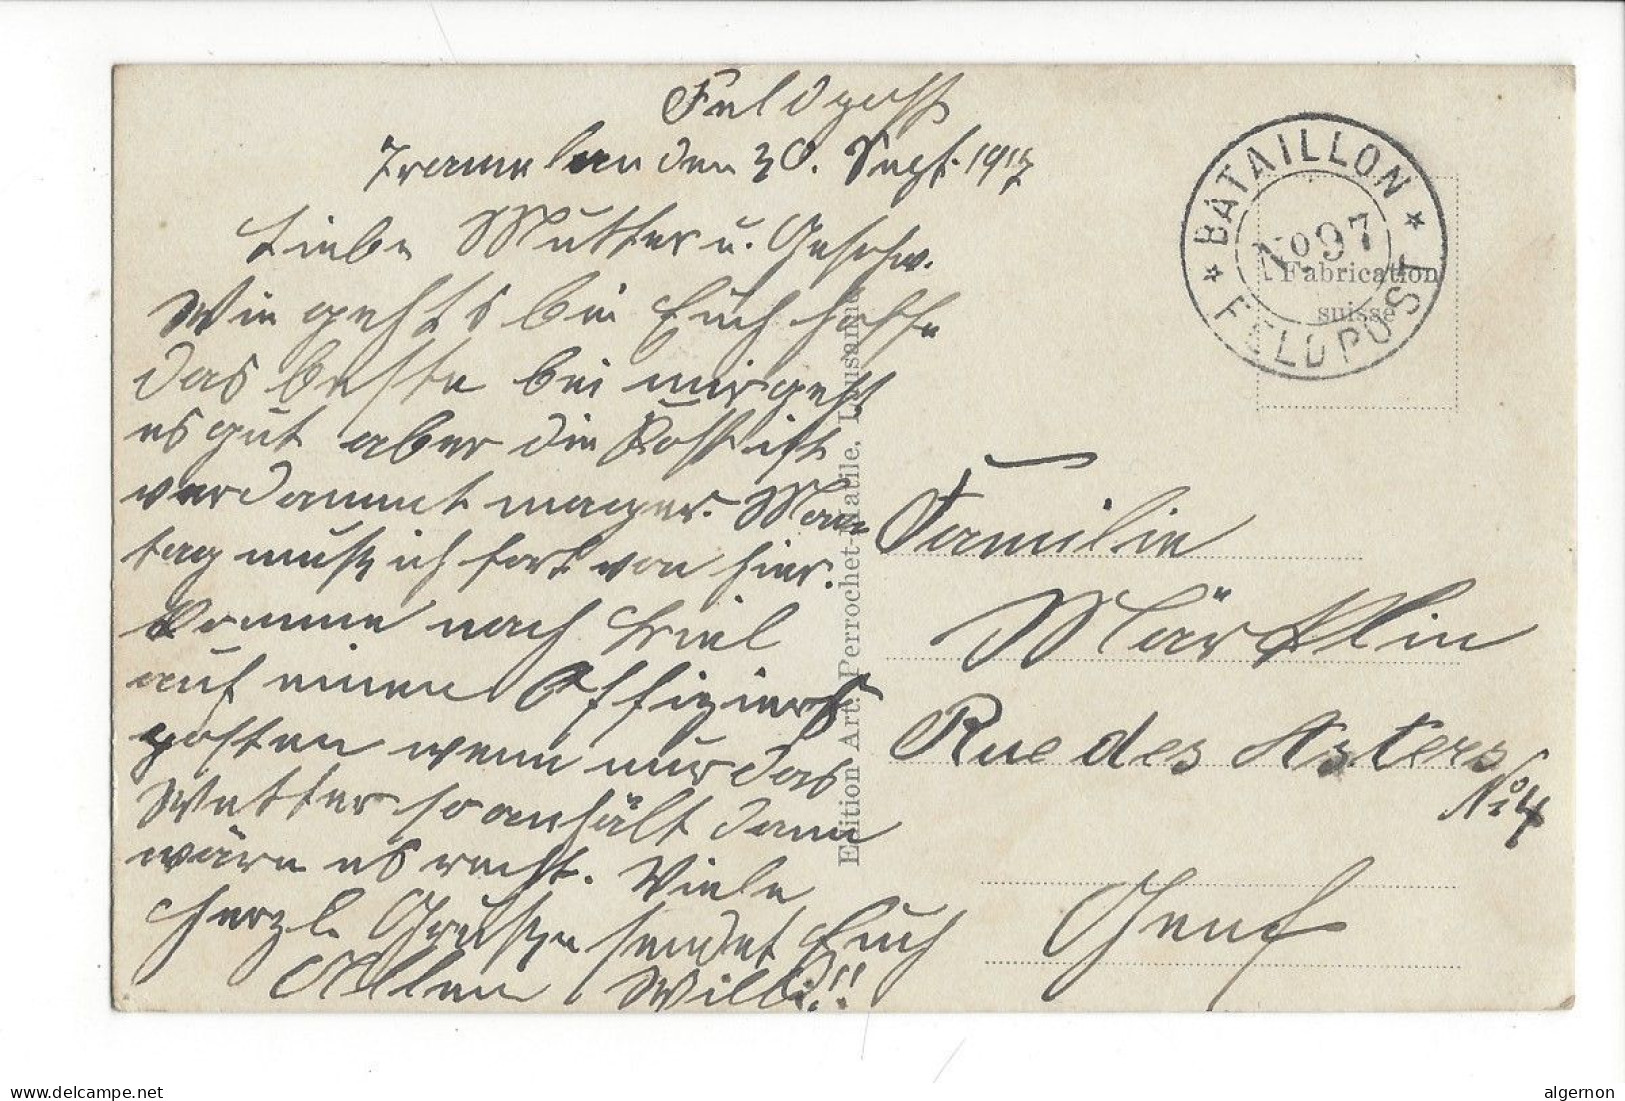 Feldpost
Tramelan den 30. Sept. 1917
Liebe Mutter u. Geschw.
Wie geht's bei Euch hoffe
das beste bei mir geht
es gut aber die Kost ist
verdammt mager. Mon
tag muß ich fort von hier.
Komme nach Biel
auf einen Offiziers
posten wenn nur das
Wetter so anhält dann
wäre es recht. Viele
herzl. Grüße sendet Euch
Allen Willi!!
Edition Art. Perrochet-Matile, Lausanne
BATAILLON
No 97
FELDPOST
Fabrication
suisse
Familie
Märklin
Rue des Asters
No 4
Genf
algernon